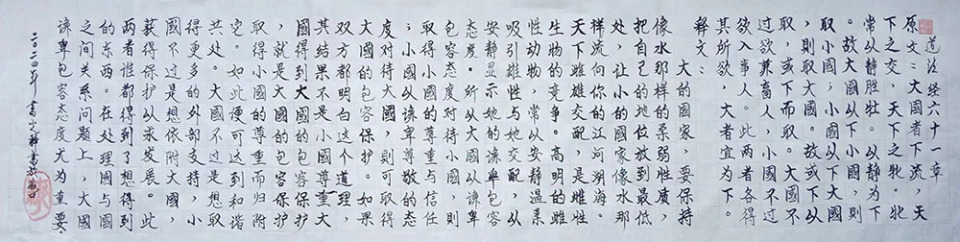 道德经六十一章
原文:大國者下流天
下之交,天下之牝。牝
常以静胜牡。以静为下
。故大國以下小國,则
取小國;小國以下大國
,则取大國。故或下以
取,或下而取。大國不
过欲兼畜人,小國不过
欲入事人。此两者各得
其所欲,大者宜为下。
释文:
大的國家,要保持
像水那样的柔弱性质,
把自己的地位放到最低
处,让小的國家像水那
样流向你的江河湖海。
天下雌雄交配,是雌性
生物的竞争。高明的雌
性动物,常以安静温柔
吸引雄性与她交配,从
安静显示她的谦卑包容
态度。所以大國以谦卑
包容态度对待小國,则
取得小國的尊重与信任
;小國以谦卑尊敬的态
度对待大國,则可取得
大國的包容保护。如果
双方都明白这个道理,
其结果不是小國尊重大
國,就是大國包容保护
取得小國的尊重而归附
定,如此便可达到和谐
共处。大國不过是想取
得更多的外部支持,小
國不过是想依附大國,
获得保护以求发展。此
两者谁都得到了想得到
的东西。在处理國与國
之间关系问题上,大國
谦卑包容态度尤为重要
二〇二四年